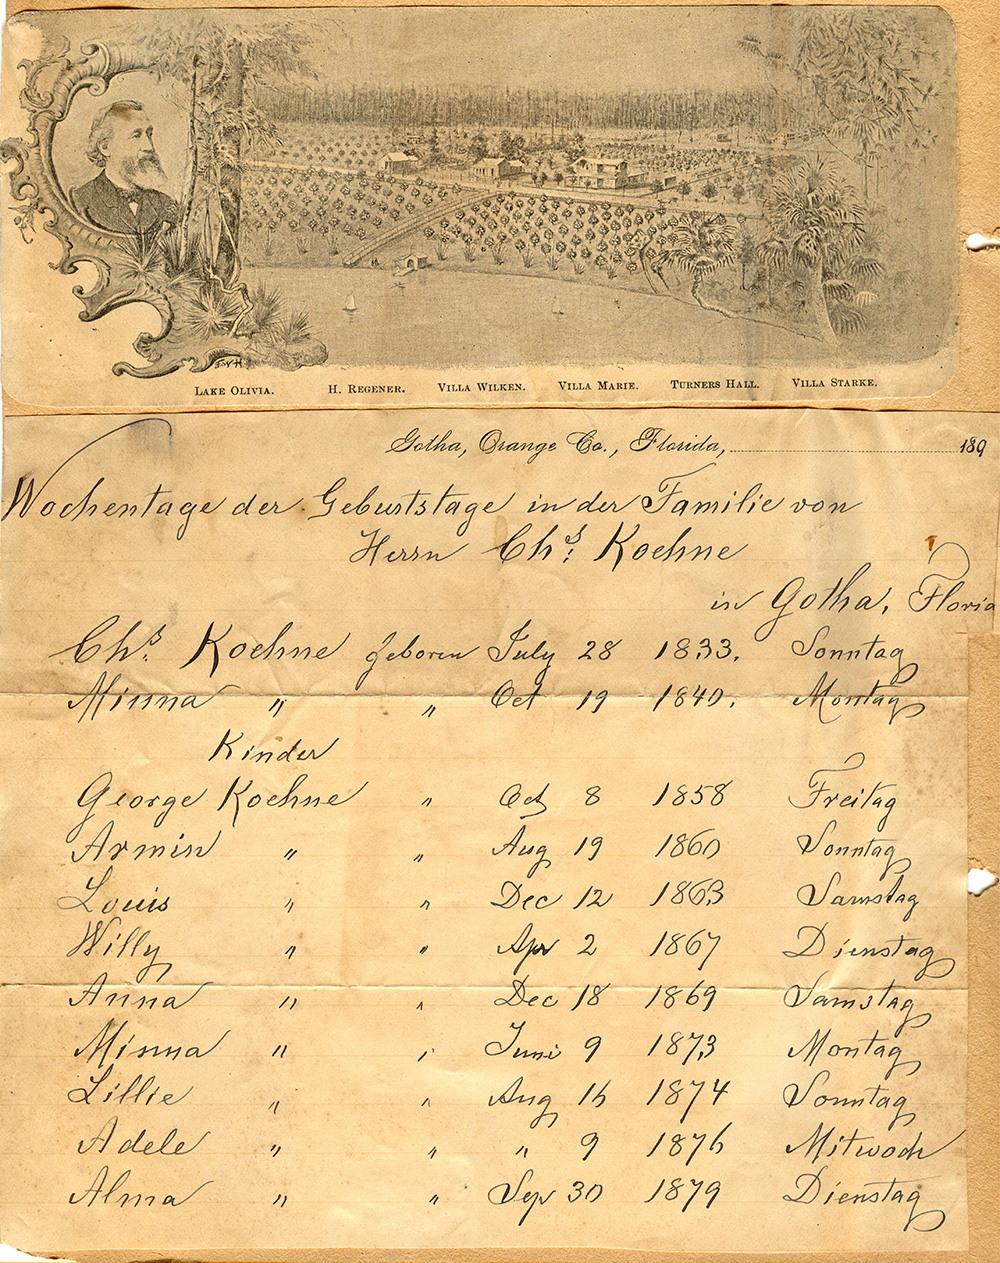 LAKE OLIVIA. H. REGENER. VILLA WILKEN. VILLA MARIE. TURNERS HALL. VILLA STARKE.
Gotha, Orange Co., Florida, 189
Wochentage der Geburtstage in der Familie von
Herrn Chs: Koehne
in Gotha, Floria
Chs. Koehne geboren July 28 1833. Sonntag
Minna " " Oct 19 1840. Montag
Kinder
George Koehne " Oct 8 1858 Freitag
Armin " " Aug 19 1860 Sonntag
Louis " " Dec 12 1863 Samstag
Willy " " Apr 2 1867 Dienstag
Anna " " Dec 18 1869 Samstag
Minna " " Juni 9 1873 Montag
Lillie " " Aug 16 1874 Sonntag
Adele " " " 9 1876 Mitwoch
Alma " " Sep 30 1879 Dienstag